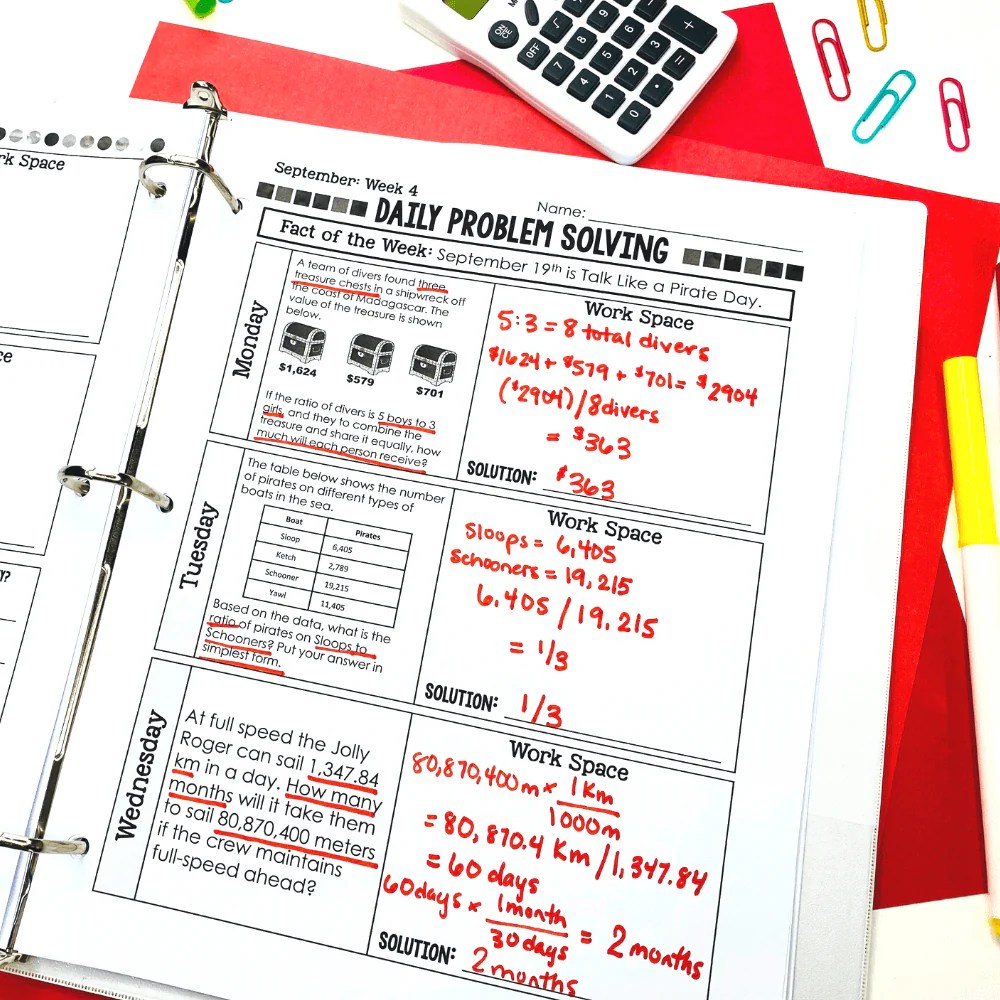 rk Space
ce
Y?
ON/C
OFF
√
%
9
8
7
6
5
4
3
2
1
+
=
.
0
September: Week 4
Name:
DAILY PROBLEM SOLVING
Fact of the Week: September 19th is Talk Like a Pirate Day.
Monday
A team of divers found three
treasure chests in a shipwreck off
the coast of Madagascar. The
value of the treasure is shown
below.
$1,624
$579
$701
If the ratio of divers is 5 boys to 3
girls, and they to combine the
treasure and share it equally, how
much will each person receive?
Work Space
5:3 = 8 total divers
$1624 + $579 + $701 = $2904
($2904)/8divers
= $363
SOLUTION: $363
Tuesday
The table below shows the number
of pirates on different types of
boats in the sea.
Boat Pirates
Sloop 6,405
Ketch 2,789
Schooner 19,215
Yawl 11,405
Based on the data, what is the
ratio of pirates on Sloops to
Schooners? Put your answer in
simplest form.
Work Space
Sloops = 6,405
Schooners = 19,215
6,405 / 19,215
= 1/3
SOLUTION: 1/3
Wednesday
At full speed the Jolly
Roger can sail 1,347.84
km in a day. How many
months will it take them
to sail 80,870,400 meters
if the crew maintains
full-speed ahead?
Work Space
80,870,400m × 1 Km
1000m
= 80,870.4 Km / 1,347.84
= 60 days
60days × 1month
30days
= 2 months
SOLUTION: 2 months